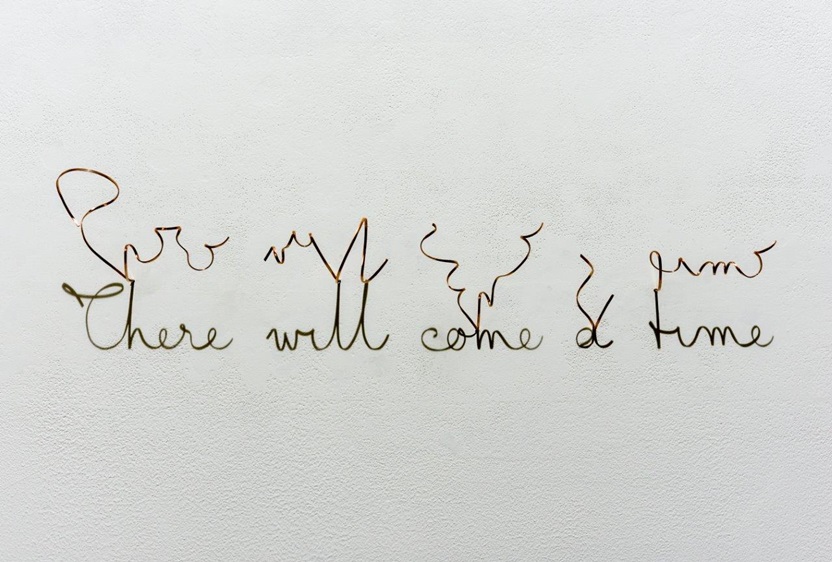 There will come a time